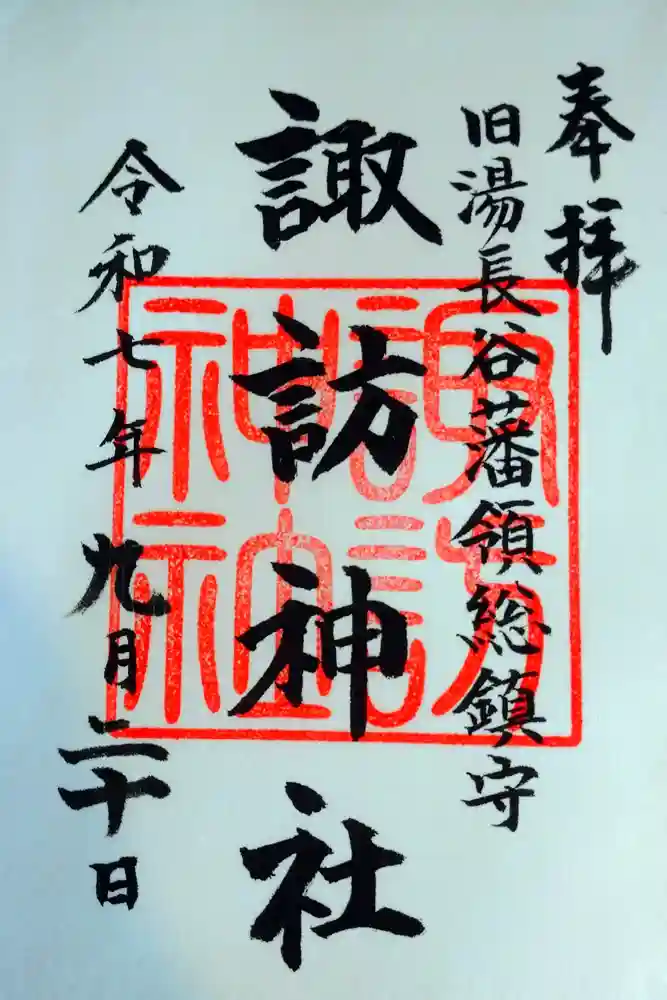 奉拝
旧湯長谷藩領総鎮守
諏訪神社
諏訪神社
令和七年九月二十日